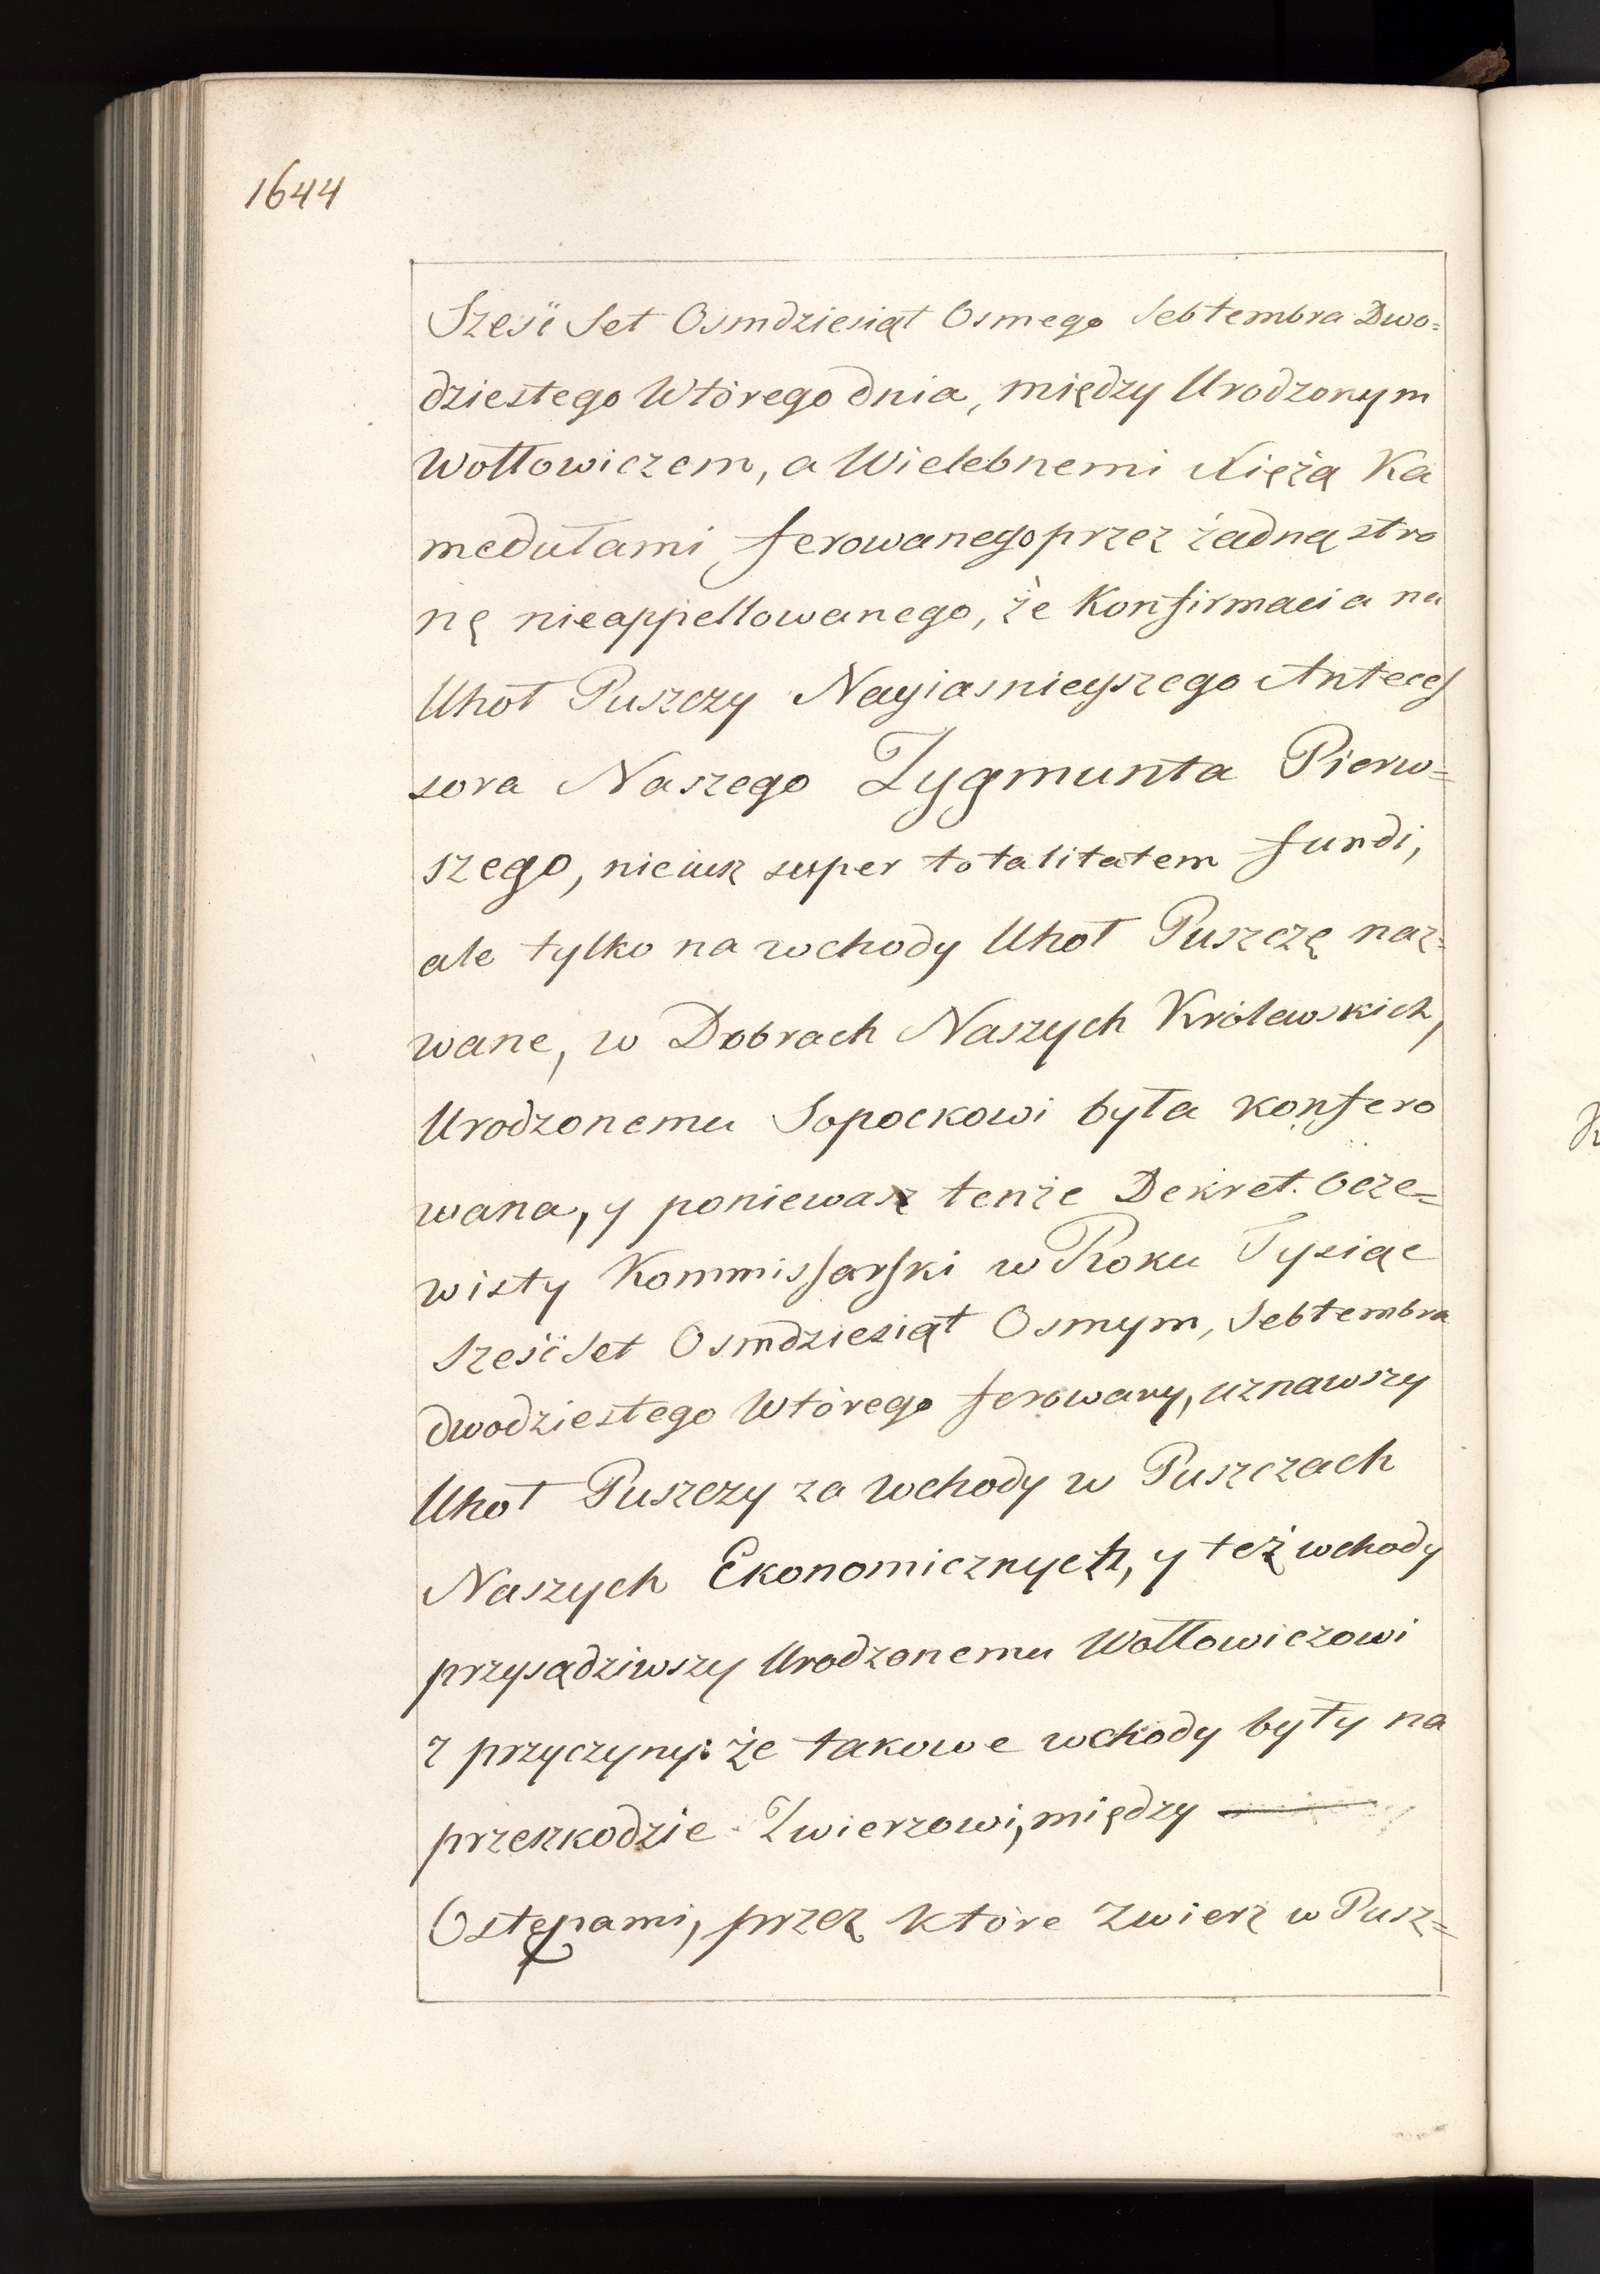 1644
Sześć Set Osmdziesiąt Osmego Sebtembra Dwo=
dziestego Wtórego dnia, między Urodzonym
Wołłowiczem, a Wielebnemi Xiężą Ka
medułami ferowanego przez żadną stro
nę nieappellowanego, że Konfirmacia na
Uhoł Puszczy Nayiasnieyszego Anteces
sora Naszego Zygmunta Pierw=
szego, nie iusz super totalitatem fundi,
ale tylko na wchody Uhoł Puszczę naz=
wane, w Dobrach Naszych Królewskich,
Urodzonemu Sopockowi była konfero
wana, y poniewasz tenże Dekret Ocze=
wisty Kommissarski w Roku Tysiąc
Sześć Set Osmdziesiąt Osmym, Sebtembra
dwodziestego Wtórego ferowany, uznawszy
Uhoł Puszczy za wchody w Puszczach
Naszych Ekonomicznych, y też wchody
przysądziwszy Urodzonemu Wołłowiczowi
z przyczyny: że takowe wchody były na
przeszkodzie Zwierzowi, między
Ostępami, przez które zwierz w Pusz=